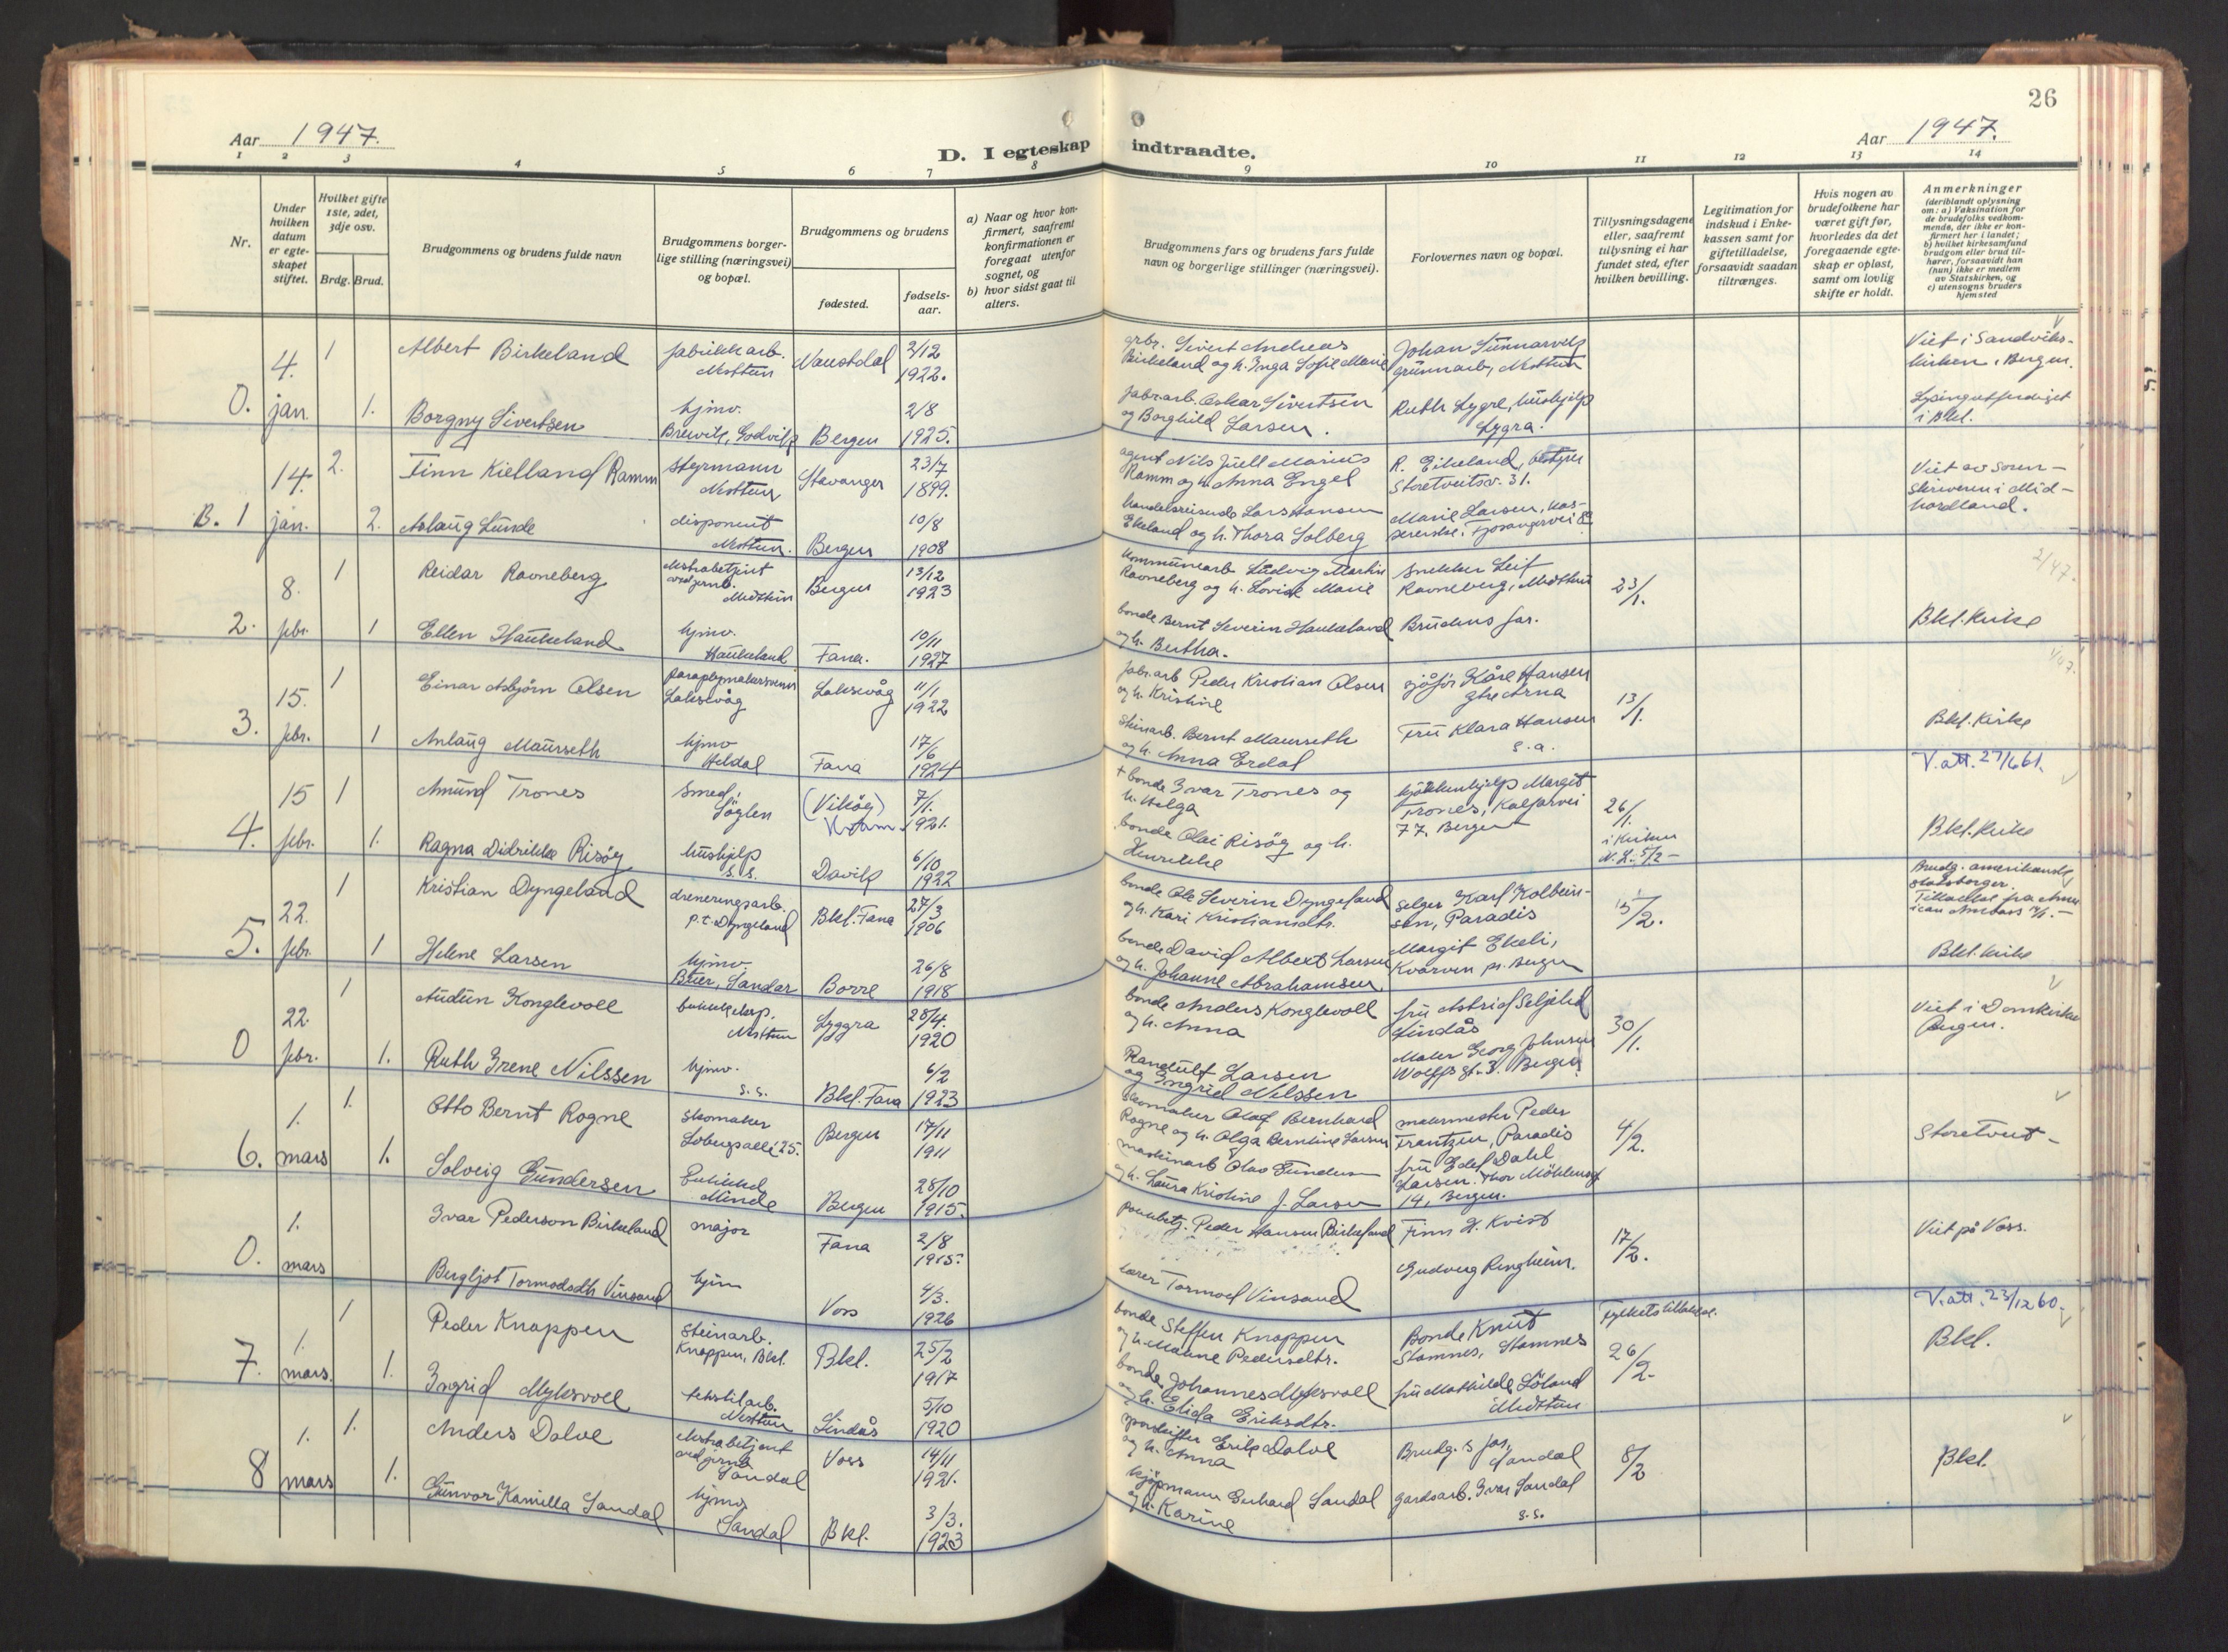 26
Aar 1947.
D. I egteskap indtraadte.
Aar 1947.
1 2 3 4 5 6 7 8 9 10 11 12 13 14
Nr.
Under hvilken datum er egteskapet stiftet.
Hvilket gifte 1ste, 2det, 3dje osv.
Brdg. Brud.
Brudgommens og brudens fulde navn
Brudgommens borgerlige stilling (næringsvei) og bopæl.
Brudgommens og brudens
fødested.
fødselsaar.
a) Naar og hvor konfirmert, saafremt konfirmationen er foregaat utenfor sognet, og
b) hvor sidst gaat til alters.
Brudgommens fars og brudens fars fulde navn og borgerlige stillinger (næringsvei).
Forlovernes navn og bopæl.
Tillysningsdagene eller, saafremt tilysning ei har fundet sted, efter hvilken bevilling.
Legitimation for indskud i Enkekassen samt for giftetilladelse, forsaavidt saadan tiltrænges.
Hvis nogen av brudefolkene har været gift før, hvorledes da det foregaaende egteskap er opløst, samt om lovlig skifte er holdt.
Anmerkninger
(deriblandt oplysning om: a) Vaksination for de brudefolks vedkommende, der ikke er konfirmert her i landet;
b) hvilket kirkesamfund brudgom eller brud tilhører, forsaavidt han (hun) ikke er medlem av Statskirken, og
c) utensogns bruders hjemsted
0. 4. jan. 1 Albert Birkeland fabrikkarb. Nesttun Naustdal 2/12 1922.
Sivert Andreas Birkeland og h. Inga Sofie Marie Johan Gunnarvik Nesttun
Viet i Sandvikskirken i Bergen.
1. Borgny Sivertsen hjmv. Bergen 2/8 1925.
fabr.arb. Oskar Sivertsen og Borghild Larsen. Ruth Lygre, hushjelp Lygra.
i Bkl.
B. 1 14. jan. 2. Finn Kielland Ramm styrmann Nesttun Stavanger 23/7 1899.
agent Nils Juell Marius Ramm og h. Anna Engel R. Eikeland, Storetveitsv. 31.
Viet av Sorenskriveren i Midhordland.
2. Aslaug Lunde disponent Nesttun. Bergen 10/8 1908
handelsreisende Lars Hansen Ekeland og h. Thora Solberg Marie Larsen,
2. 8. febr. 1 Reidar Ravneberg ekstrabetjent ved jernb. Midttun Bergen 13/12 1923
kommunearb Ludvig Martin Ravneberg og h. Lovise Marie snekker Leif Ravneberg, Midttun 23/1.
2/47.
1 Ellen Haukeland hjmv. Haukeland Fana. 10/11 1927
bonde Bernt Severin Haukeland og h. Bertha. Brudens far.
Bkl. Kirke
3. 15. febr. 1 Einar Asbjörn Olsen Laksevåg Laksevåg 11/1 1922
fabr.arb Peder Kristian Olsen og h. Kristine sjåför Kåre Hansen Arna 13/1.
1 Anlaug Maurseth hjmv Heldal Fana 17/6 1924
steinarb. Bernt Maurseth og h. Anna Erdal Fru Klara Hansen s.a.
Bkl. Kirke
4. 15 febr. 1 Amund Trones Smed, Söglen (Vikøy) Kvam 7/1. 1921.
V. att. 27/6 61.
+ bonde Ivar Trones og h. Helga kjökkenhjelp Margit Trones, Kalfarvei 77. Bergen 26/1. i Kirken
1. Ragna Didrikke Risöy hushjelp s.s. Davik 6/10 1922
bonde Olai Risöy og h. Henrikke
Bkl. Kirke
5. 22. febr. 1 Kristian Dyngeland dreneringsarb. p.t. Dyngeland Bkl. Fana 27/3 1906
bonde Ole Severin Dyngeland og h. Kari Kristiansdtr. selger Karl Kolbeinsen, Paradis 15/2.
Brudg. amerikansk statsborger.
1 Helene Larsen hjmv. Sandar Borre 26/8 1918
bonde David Albert Larsen og h. Johanne Abrahamsen Margit Ekeli, Kvarven pr. Bergen
Bkl. kirke
0 22. febr. 1 Audun Konglevoll Nesttun Lyggra 28/4. 1920
bonde Anders Konglevoll og h. Anna fru Astrid Seljelid Lindås 30/1.
Viet i Domkirken Bergen.
1. Ruth Irene Nilssen hjmv. s.s. Bkl. Fana 6/2 1923
Randulf Larsen og Ingrid Nilssen Maler Georg Johnsen Wolffs gt. 3. Bergen.
6. 1. mars 1. Otto Bernt Rogne skomaker Bergen 17/11 1911
skomaker Olaf Bernhard Rogne og h. Olga Berntine Larsen Peder Frantzen, Paradis 4/2.
Storetveit
1. Solveig Gundersen Minde Bergen 28/10 1915.
maskinarb Olav Gundersen og h. Laura Kristine J. Larsen fru Edel Dahl Larsen. Thor Möhlensgt 14, Bergen.
0. 1. mars Ivar Pederson Birkeland major Fana 2/8 1915.
Peder Hansen Birkeland Finn H. Kvist 17/2.
Viet på Voss.
Bergljot Tormodsdtr Vinsand hjm Voss 4/3. 1926
lærer Tormod Vinsand Gudveig Ringheim.
7. 1. mars. 1 Peder Knappen Steinarb. Knappen, Bkl. Bkl. 25/2 1917
bonde Steffen Knappen og h. Malene Pedersdtr. Bonde Knut Stamnes, Stamnes 26/2.
V. att. 23/12 60.
Bkl.
1. Ingrid Myksvoll tekstilarb. Nesttun Lindås 5/10 1920
bonde Johannes Myksvoll og h. Elida Eriksdtr. fru Mathilde Löland Midttun
8 1. mars 1. Anders Dalve ekstrabetjent ved jernb. Sandal Voss 14/11 1921.
Erik Dalve og h. Anna Brudg. s far, Sandal 8/2
Bkl.
1. Gunvor Kamilla Sandal hjmv. Sandal Bkl. 3/3. 1923
kjöpmann Gerhard Sandal og h. Karine gardsarb. Ivar Sandal s.s.